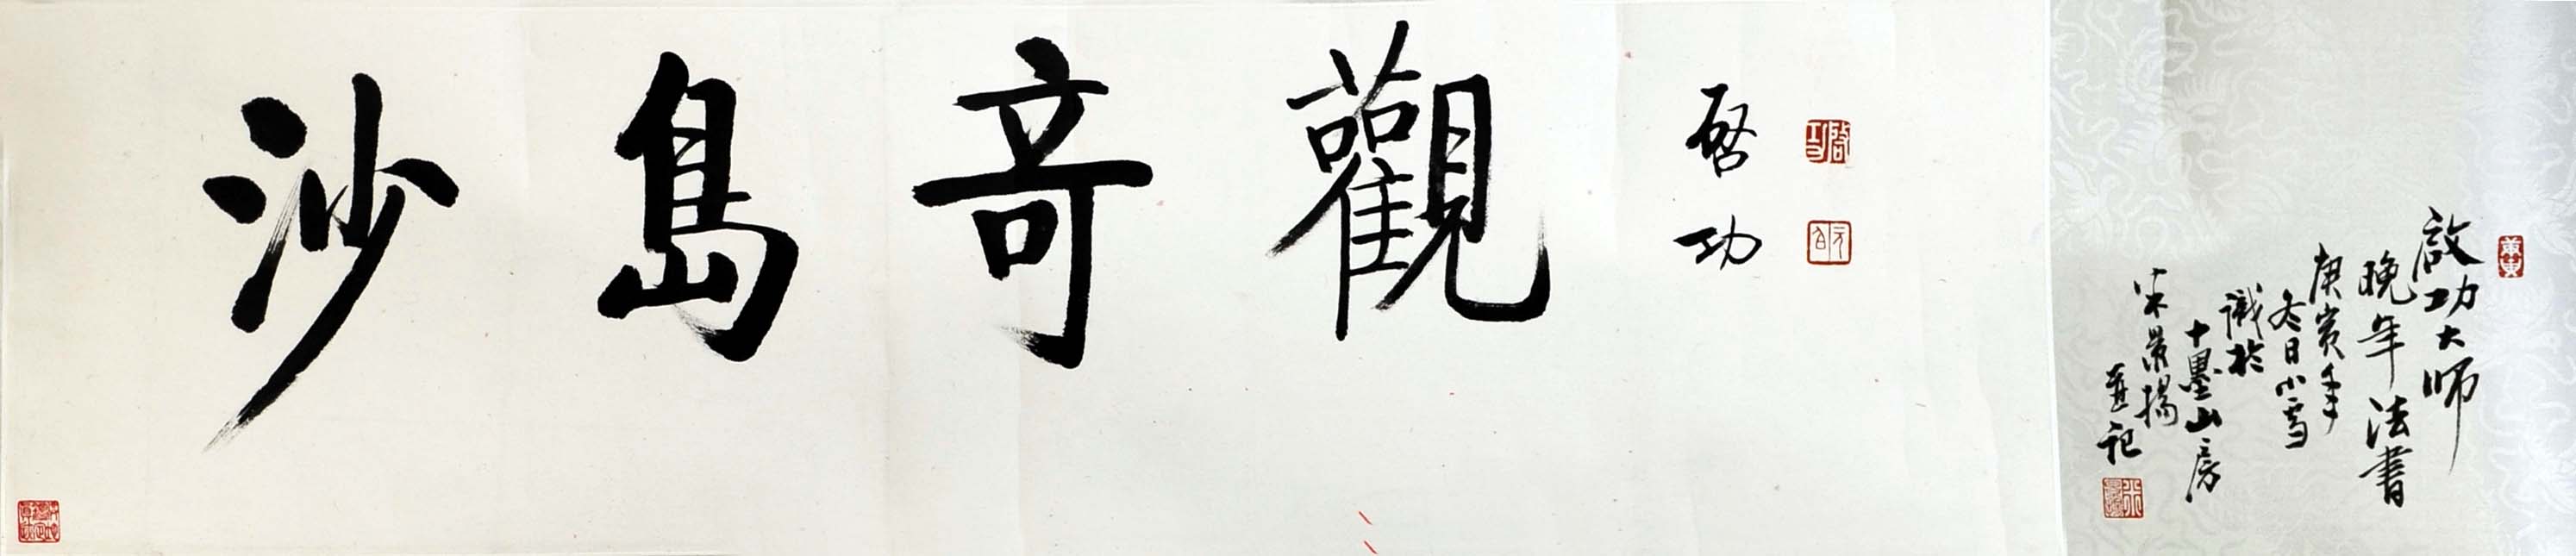 沙島奇觀
启功
啟功大师
晚年法書
庚寅年
冬日小雪
識於
十墨山房
宋景揚
并記